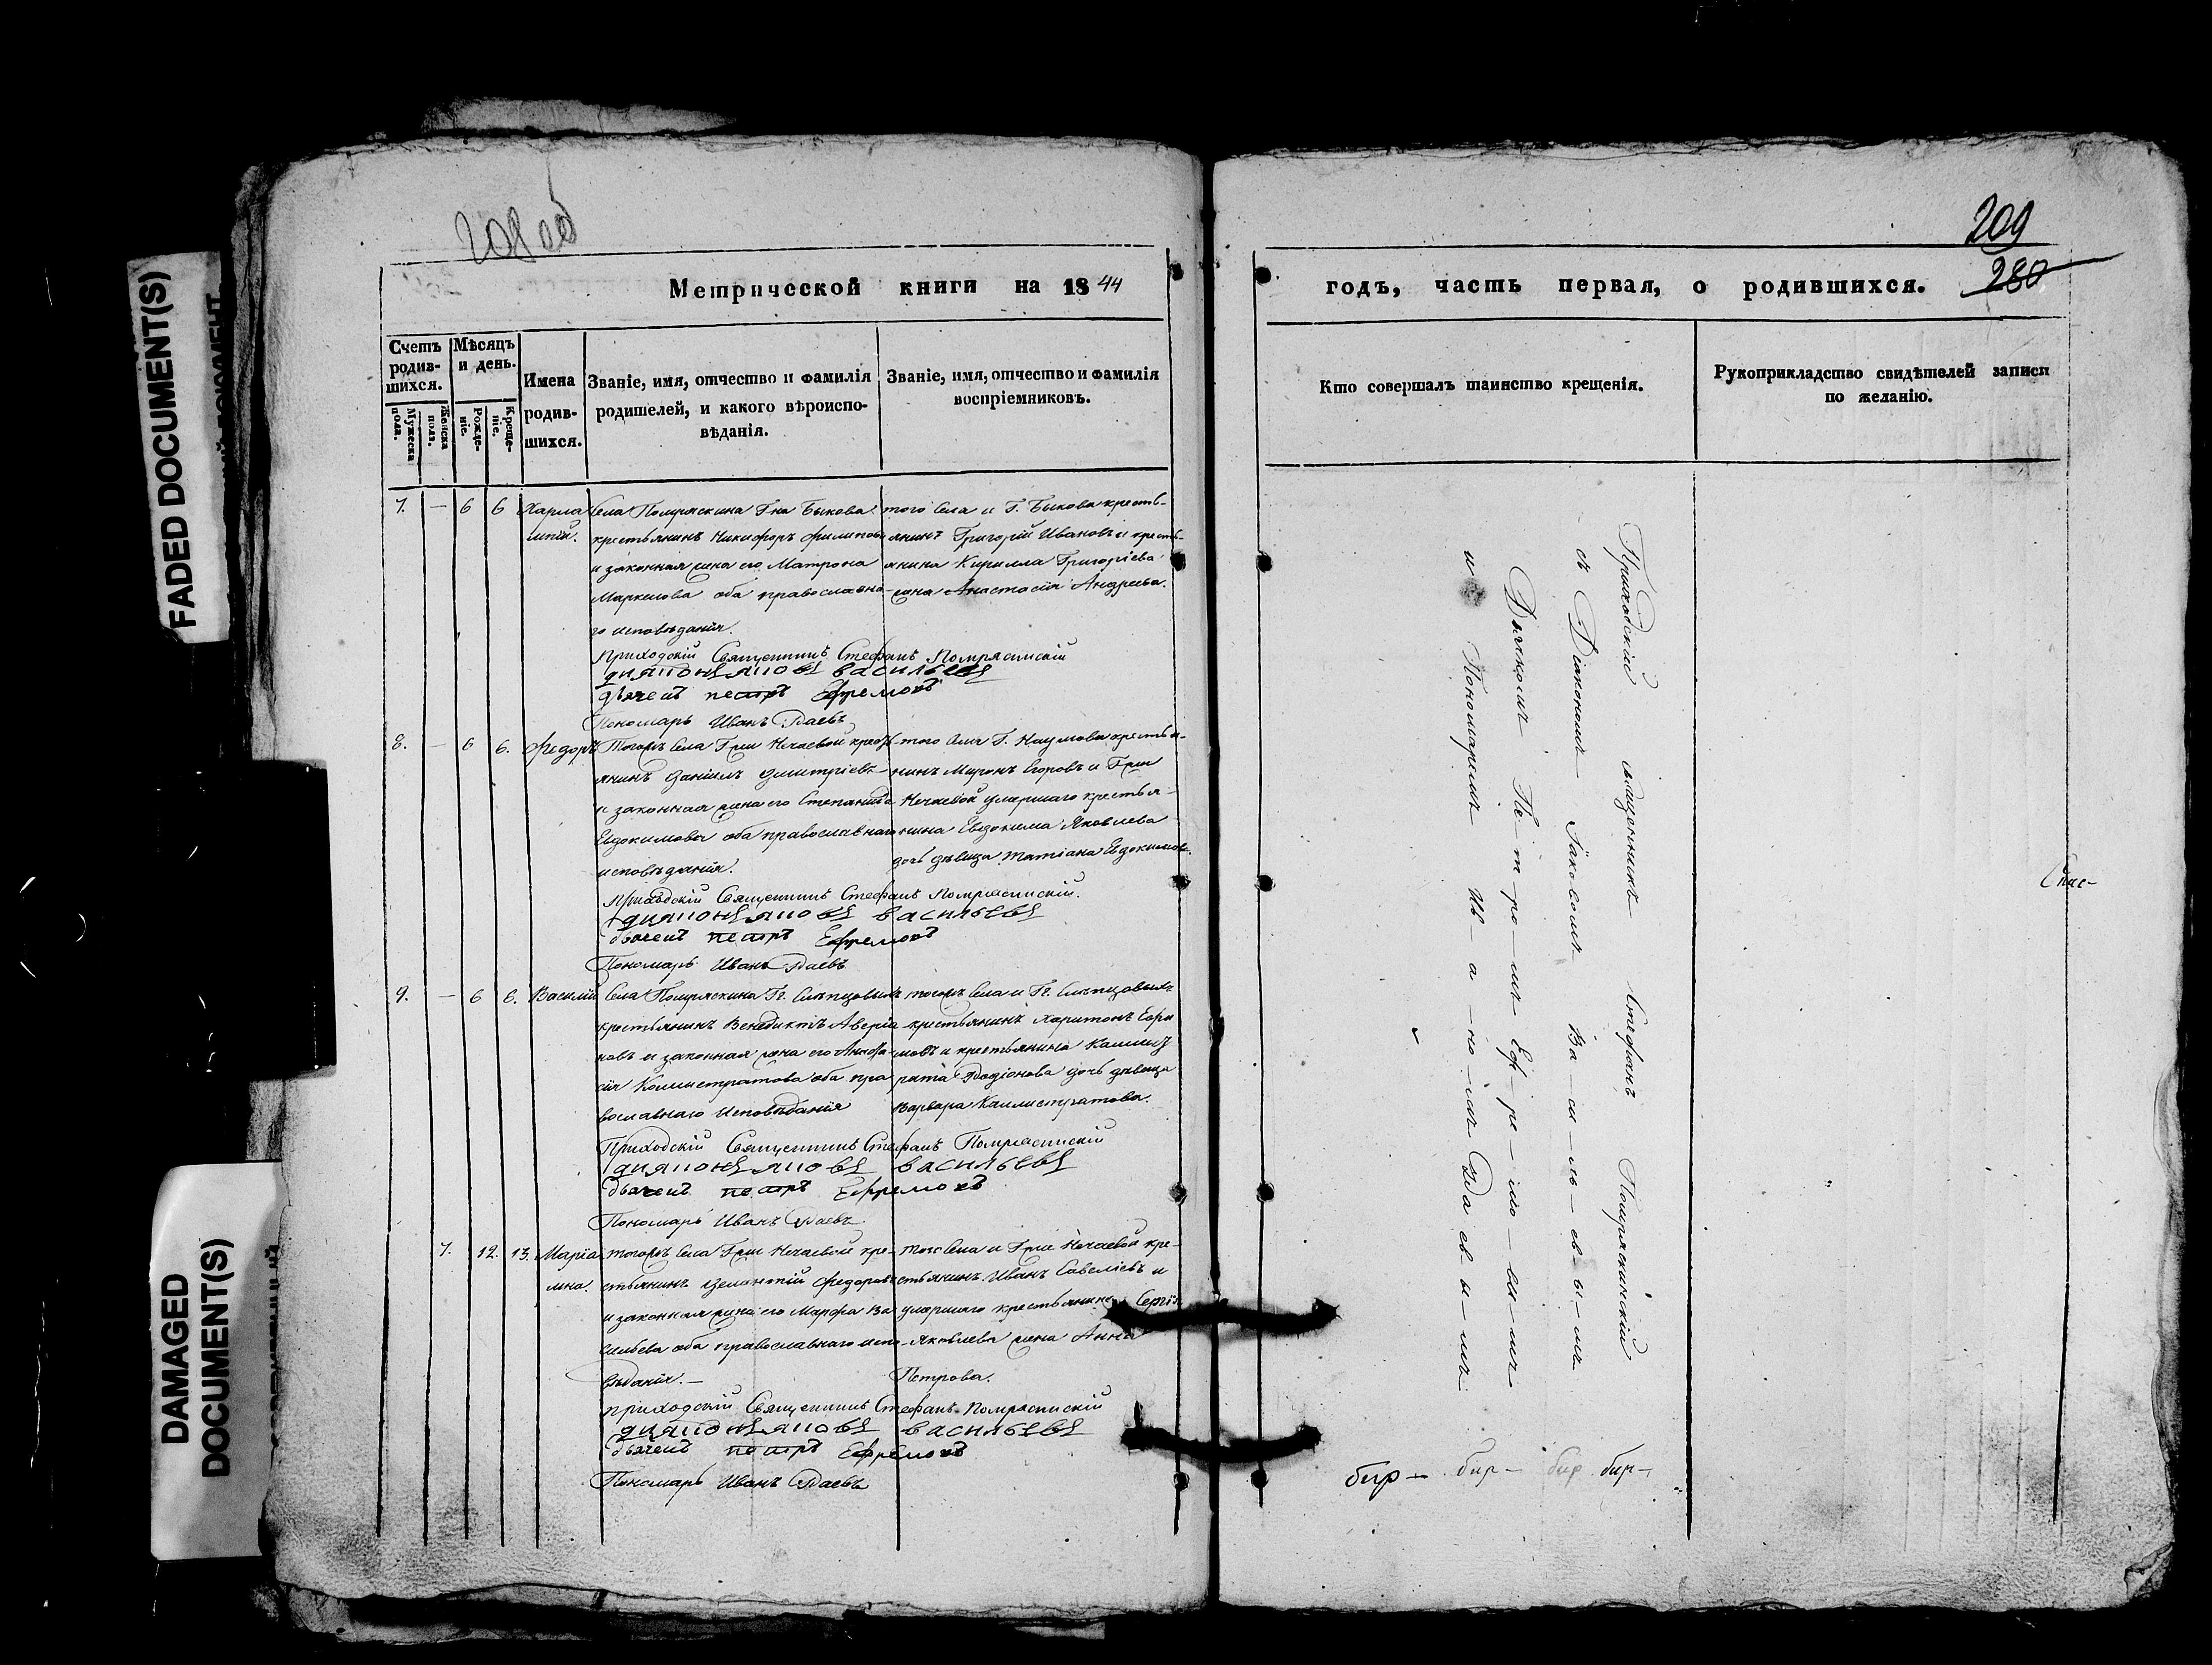 FADED DOCUMENT(S)
DAMAGED
DOCUMENT(S)
208 об
209
280
Метрической книги на 1844
годъ, часть первая, о родившихся.
Счетъ родив-шихся.
Мужеска пола.
Женска пола.
Мѣсяцъ и день.
Рожде-ніе.
Креще-ніе.
Имена родив-шихся.
Званіе, имя, отчество и фамилія
родителей, и какого вѣроиспо-
вѣданія.
Званіе, имя, отчество и фамилія
воспріемниковъ.
Кто совершалъ таинство крещенія.
Рукоприкладство свидѣтелей записи
по желанію.
7. — 6 6 Харла
мпій.
Села Помряскина Г-на Быкова
крестьянинъ Никифоръ Филипов
и законная жена его Матрона
Маркелова оба православна-
го исповѣданія.
того Села и Г. Быкова кресть-
янинъ Григорій Ивановъ и кресть-
янина Кирилла Григоріева
жена Анастасія Андреева.
Приходскій Священникъ Стефанъ Помряскинскій
диаконъ яковъ васильевъ
дьячекъ петръ Ефремовъ
Пономарь Иванъ Рдаевъ
8. — 6 6. Федоръ
Тогожъ Села Г-жи Нечаевой крест-
янинъ Даніилъ Дмитріевъ
и законная жена его Степанида
Евдокимова оба православнаго
исповѣданія.
того Села Г. Наумова крестья-
нинъ Миронъ Егоровъ и Г-жи
Нечаевой умершаго крестья-
нина Евдокима Яковлева
дочь дѣвица Татіана Евдокимов.
Приходскій Священникъ Стефанъ Помряскинскій.
диаконъ яковъ васильевъ
дьячекъ петръ Ефремовъ
Пономарь Иванъ Рдаевъ
9. — 6 6. Василій
Села Помряскина Гг. Слѣпцовыхъ
крестьянинъ Венедиктъ Аверіа
новъ и законная жена его Анфи
са Каллистратова оба пра
вославнаго Исповѣданія
тогожъ Села и Гг. Слѣпцовыхъ
крестьянинъ Харитонъ Ефи
мовъ и крестьянина Каллист
рата Родіонова дочь дѣвица
Варвара Каллистратова.
Приходскій Священникъ Стефанъ Помряскинскій
диаконъ яковъ васильевъ
дьячекъ петръ Ефремовъ
Пономарь Иванъ Рдаевъ
7. 12. 13. Маріа
мна.
тогожъ Села Г-жи Нечаевой кре-
стьянинъ Федоровъ
и законная жена его Марфа Ва
сильева оба православнаго испо-
вѣданія.—
Тогож Села и Г-жи Нечаевой кре-
стьянинъ Иванъ Савеліевъ и
умершаго крестьянина Сергія
Яковлева жена Анна
Петрова.
приходскій Священникъ Стефанъ Помряскинскій
диаконъ яковъ васильевъ
дьячекъ петръ Ефремовъ
Пономарь Иванъ Рдаевъ
Приходскій священникъ Стефанъ Помряскинскій
съ Діакономъ Іаковомъ Ва-си-ль-ев-ы-мъ
Дьячкомъ Пе-т-ро-мъ Еф-ре-мо-вы-мъ
и Пономаремъ Ив-а-но-мъ Рда-ев-ы-мъ
бир— бир— бир бир—
Спас-